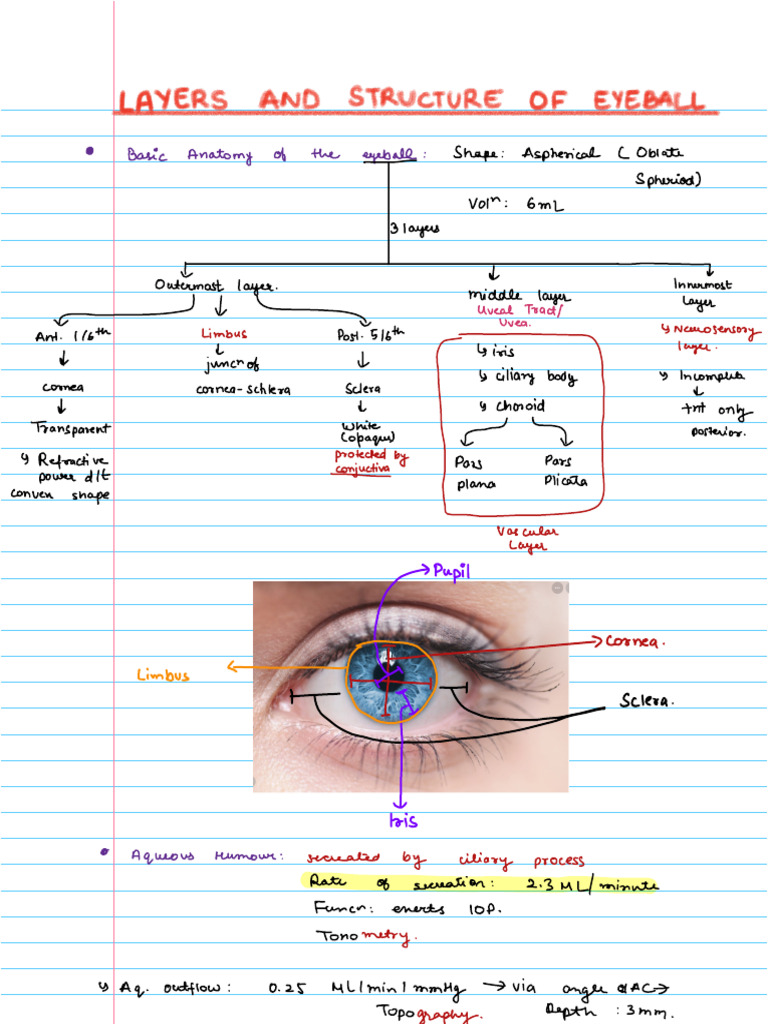 LAYERS AND STRUCTURE OF EYEBALL
• Basic Anatomy of the eyeball: Shape: Aspherical ( Oblate
Spheriod)
Volⁿ: 6mL
3 layers
Outermost layer.
Ant. 1/6th
cornea
Transparent
Refractive
power d/t
conven shape
Limbus
juncⁿ of
cornea-schlera
Post. 5/6th
Sclera
White
(opaque)
protected by
conjuctiva
middle layer
Uveal Tract/
Uvea.
iris
ciliary body
choroid
Pars
plana
Pars
Plicata
Vascular
Layer
Innermost
Layer
Neurosensory
layer.
Incomplete
+nt only
posterior.
Pupil
Cornea.
Limbus
Sclera.
Iris
• Aqueous Humour: secreated by ciliary process
Rate of secreation: 2.3 ML/minute
Funcn: enerts IOP.
Tonometry.
Aq. outflow: 0.25 ML/min/mmHg → via angle of AC→
Topography. Depth: 3mm.